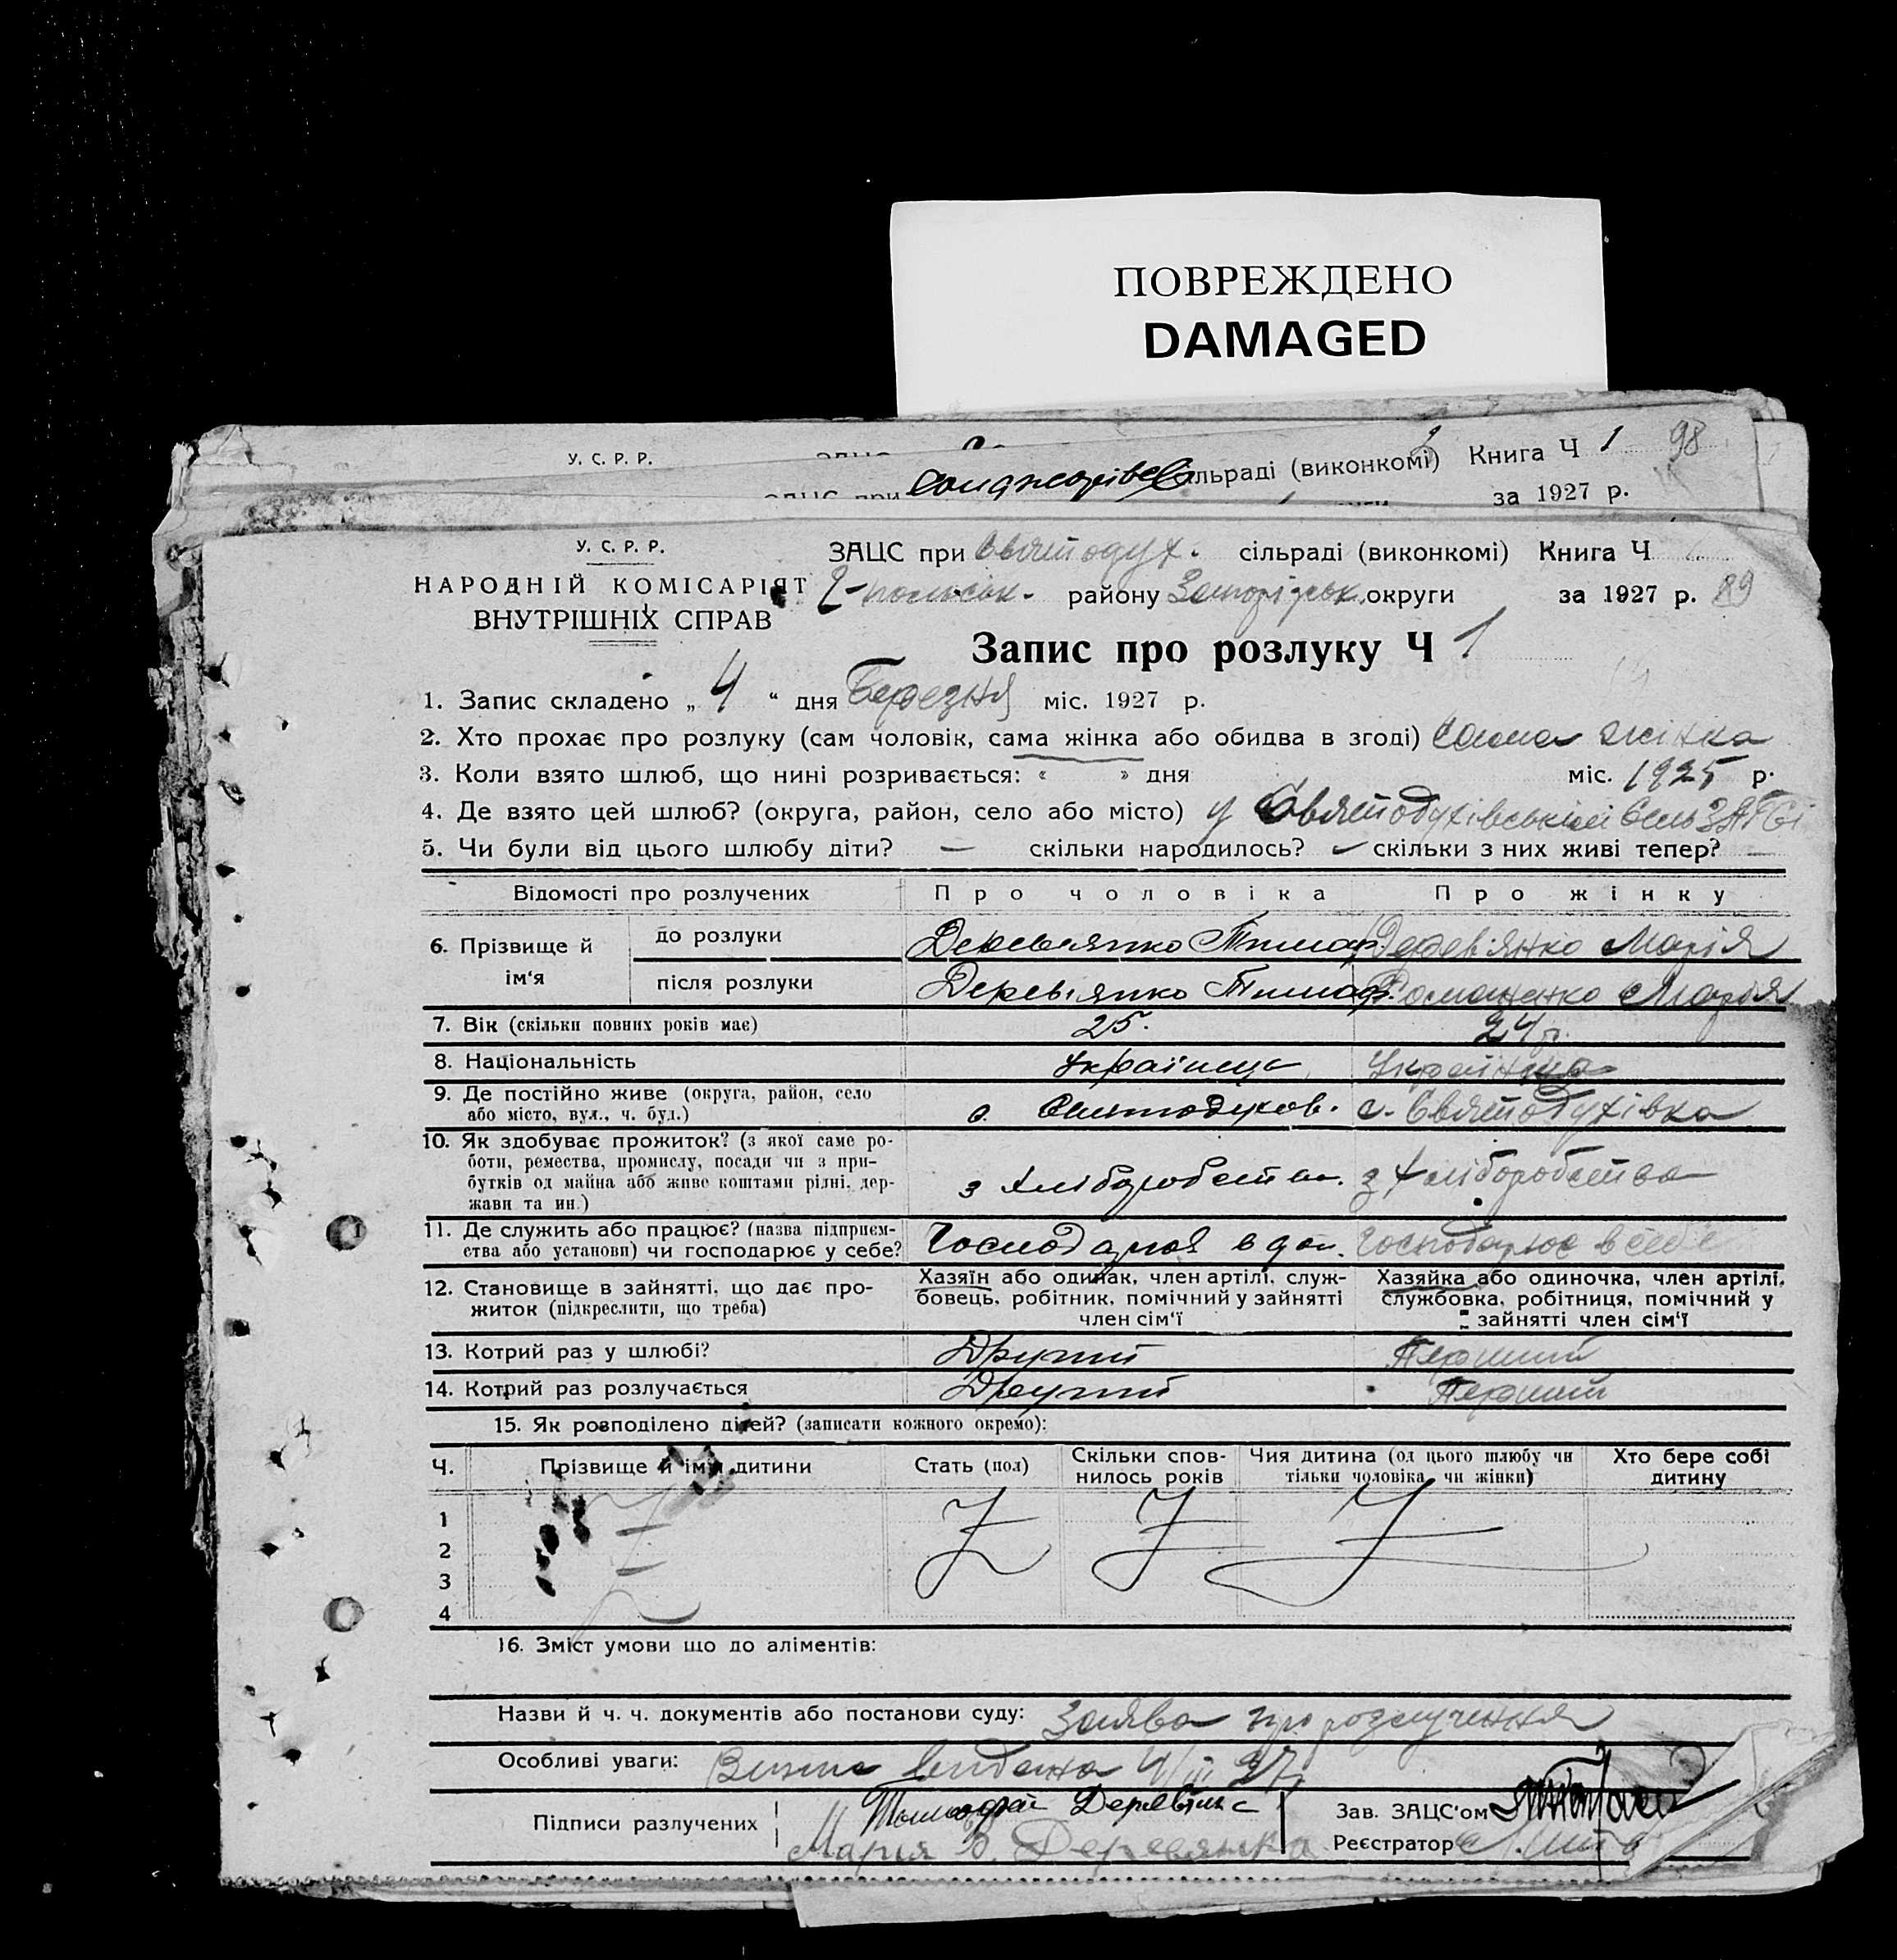 ПОВРЕЖДЕНО
DAMAGED
У. С. Р. Р.
сільраді (виконкомі) Книга Ч 1 98
за 1927 р.
У. С. Р. Р.
ЗАЦС при Святодух. сільраді (виконкомі) Книга Ч
НАРОДНІЙ КОМІСАРІЯТ
району Запорізськ. округи за 1927 р. 89
ВНУТРІШНІХ СПРАВ
Запис про розлуку Ч 1
1. Запис складено „ 4 “ дня Березня міс. 1927 р.
2. Хто прохає про розлуку (сам чоловік, сама жінка або обидва в згоді) сама жінка
3. Коли взято шлюб, що нині розривається: « » дня міс. 1925 р.
4. Де взято цей шлюб? (округа, район, село або місто) у Святодухівській
5. Чи були від цього шлюбу діти? — скільки народилось? — скільки з них живі тепер? —
Відомості про розлучених Про чоловіка Про жінку
6. Прізвище й ім‘я
до розлуки Деревьянко Тимоф. Дерев'янко Марія
після розлуки Деревьянко Тимоф. Романенко Марія
7. Вік (скільки повних років має) 25. 24 р.
8. Національність Українець Українка
9. Де постійно живе (округа, район, село
або місто, вул., ч. буд.) с. Святодухов. с. Святодухівка
10. Як здобуває прожиток? (з якої саме ро-
боти, ремества, промислу, посади чи з при-
бутків од майна або живе коштами рідні, дер-
жави та ин.) з хліборобства. з хліборобства
11. Де служить або працює? (назва підприєм-
ства або установи) чи господарює у себе? Господарює в себе
12. Становище в зайнятті, що дає про-
житок (підкреслити, що треба)
Хазяїн або одинак, член артілі, служ-
бовець, робітник, помічний у зайнятті
член сім‘ї
Хазяйка або одиночка, член артілі,
службовка, робітниця, помічний у
зайнятті член сім‘ї
13. Котрий раз у шлюбі? Другий Перший
14. Котрий раз розлучається Другий Перший
15. Як розподілено дітей? (записати кожного окремо):
Ч. Прізвище й ім‘я дитини Стать (пол) Скільки спов-
нилось років Чия дитина (од цього шлюбу чи
тільки чоловіка чи жінки) Хто бере собі
дитину
1
2
3
4
16. Зміст умови що до аліментів:
Назви й ч. ч. документів або постанови суду: Заява про розлучення
Особливі уваги: видана 4/III 27
Підписи разлучених Тимофей
Марія Деревянка
Зав. ЗАЦС‘ом
Реєстратор